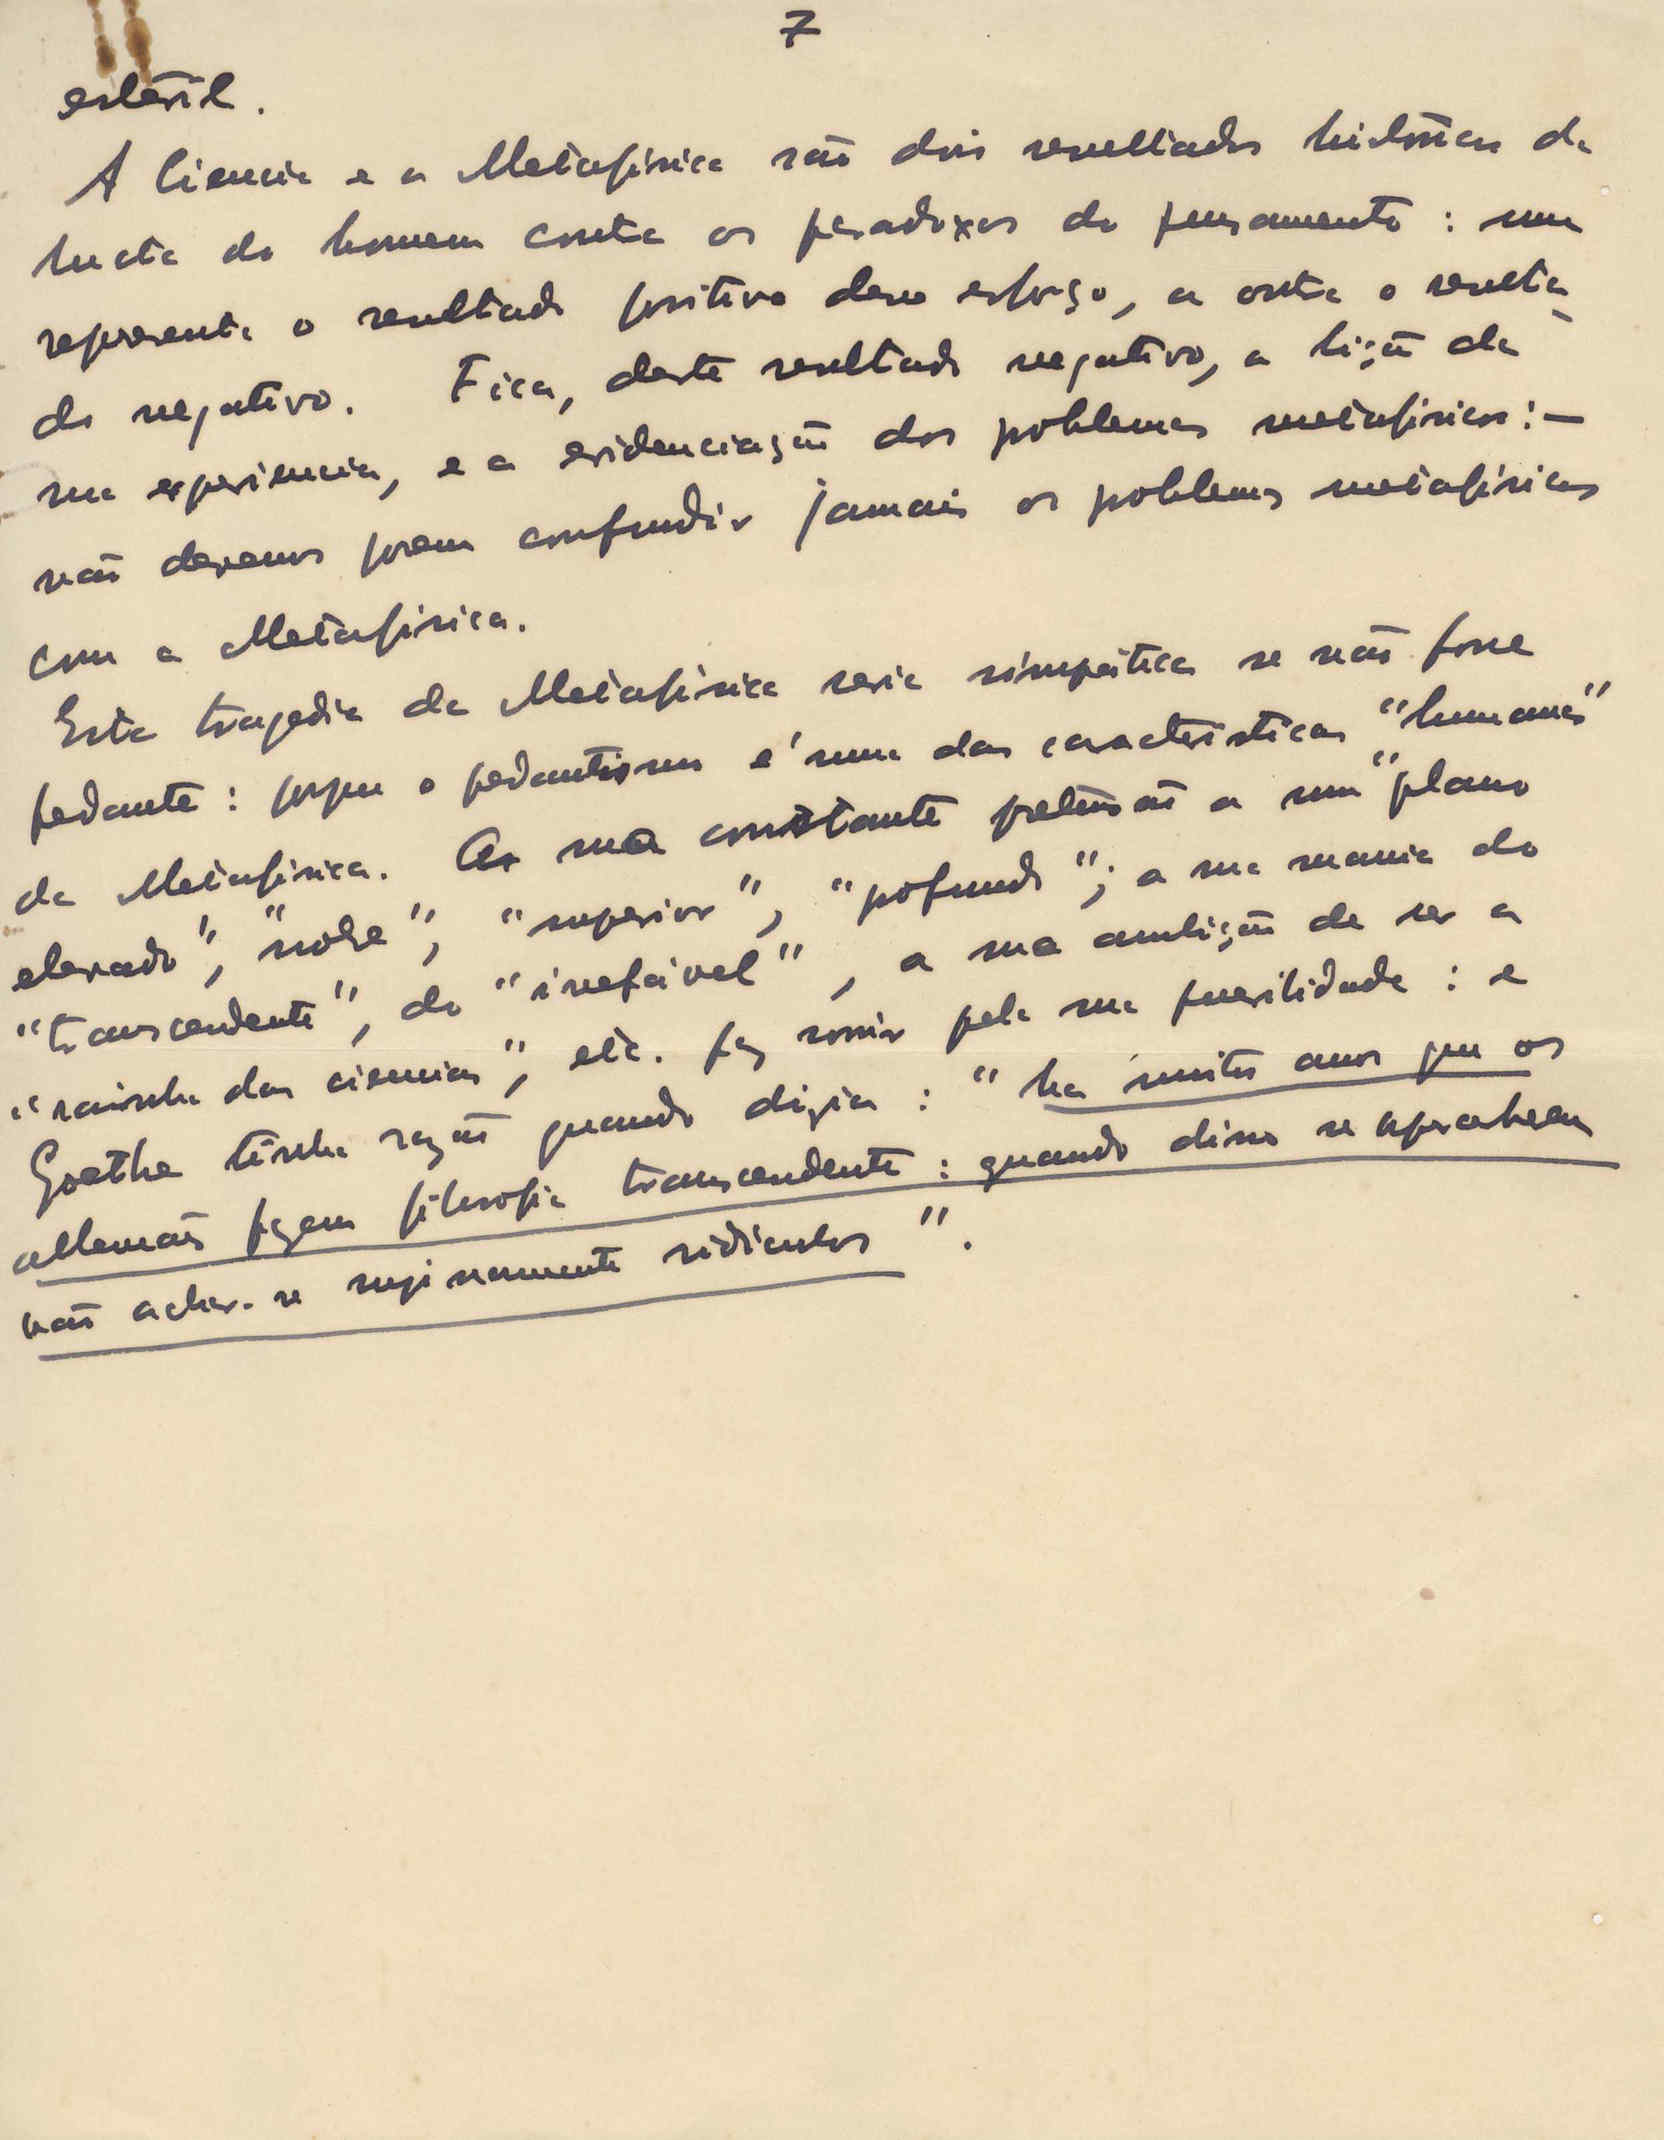 7
estéril.
A Ciencia e a Metafísica são dois resultados históricos da
lucta do homem contra os paradoxos do pensamento: uma
representa o resultado positivo desse esforço, a outra o resulta-
do negativo. Fica, deste resultado negativo, a lição da
sua experiencia, e a evidenciação dos problemas metafísicos:—
não devemos porem confundir jamais os problemas metafísicos
com a Metafísica.
Esta tragedia da Metafísica seria simpática se não fosse
pedante: porque o pedantismo é uma das características "humanas"
da Metafísica. A sua constante pretensão a um "plano
elevado", "nobre", "superior", "profundo"; a sua mania do
"transcendente", do "inefável", a sua ambição de ser a
"rainha das ciencias", etc. faz sorrir pela sua puerilidade: e
Goethe tinha razão quando dizia: "ha muitos anos que os
allemães fazem filosofia transcendente: quando disso se aperceberem
vão achar-se supinamente ridiculos".